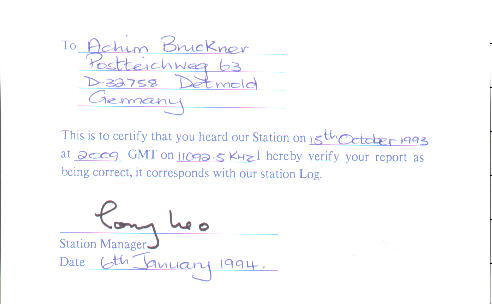 To Achim Bruckner
Postteichweg 63
D-32758 Detmold
Germany
This is to certify that you heard our Station on 15th October 1993
at 2009 GMT on 11092.5 KHz I hereby verify your report as
being correct, it corresponds with our station Log.
Tony Leo
Station Manager
Date 6th January 1994.